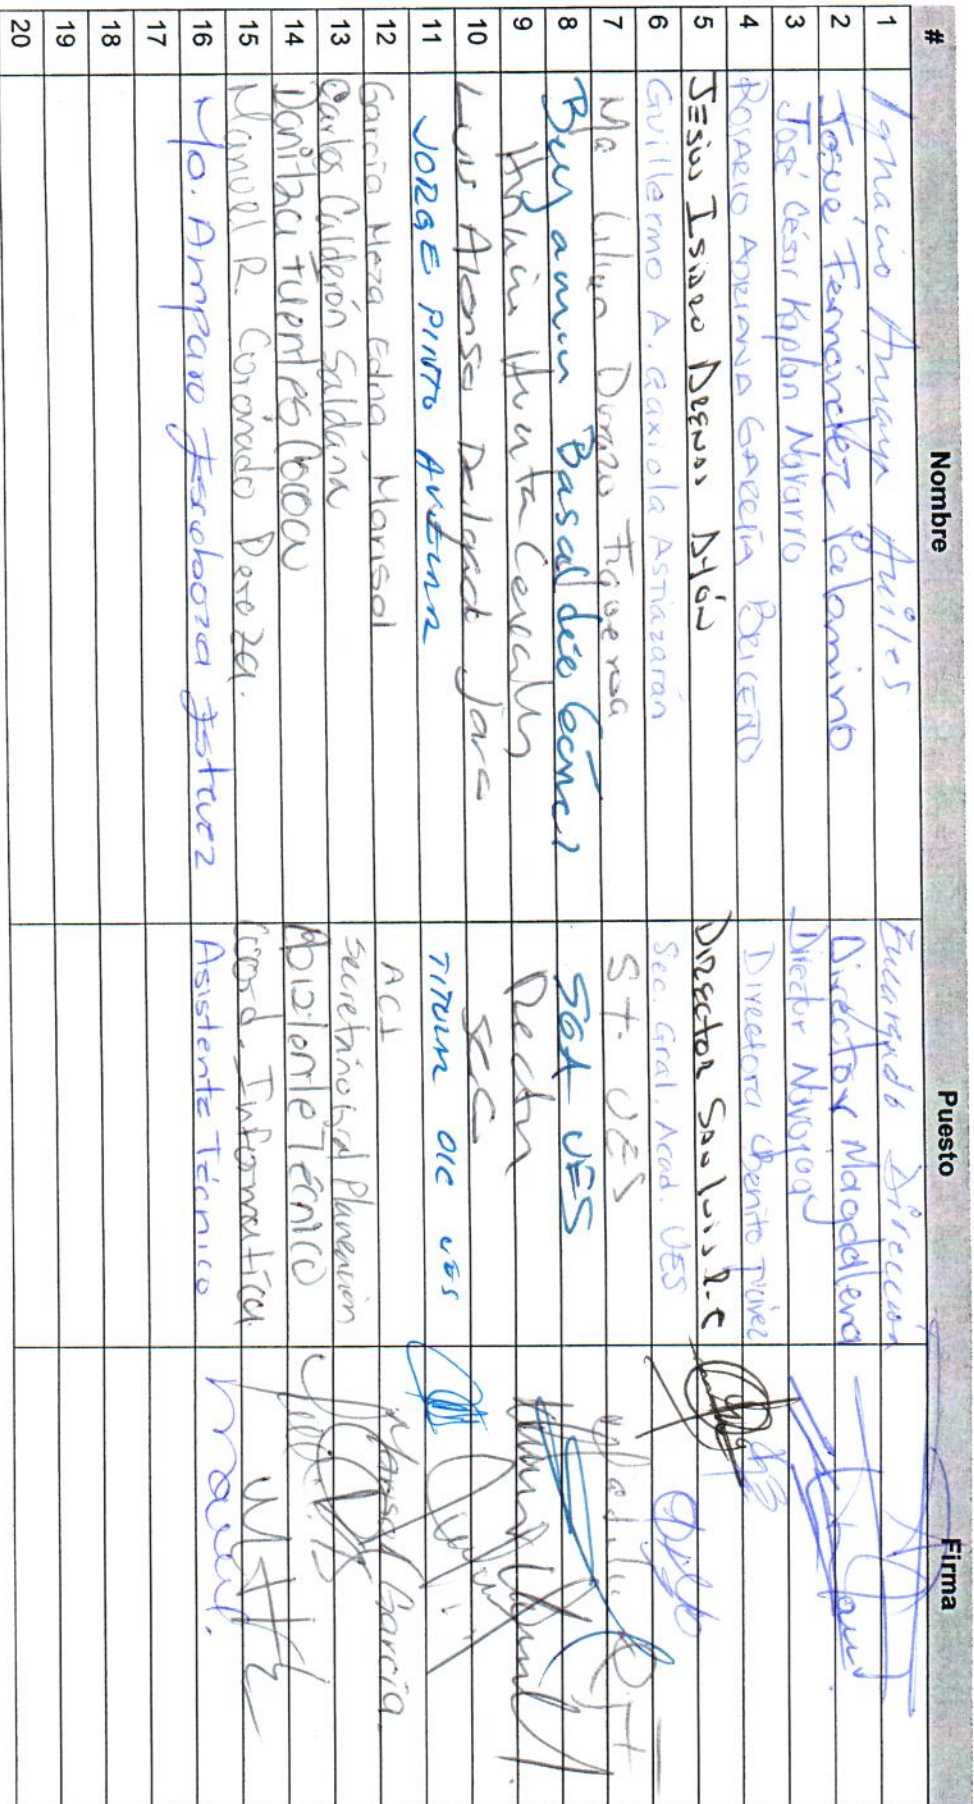 # Nombre Puesto Firma
1 Ignacio Amaya Aviles Encargado Dirección
2 Josué Fernández Palomino Director Magdalena
3 José César Kaplan Navarro Director Navojoa
4 ROSARIO ADRIANA GARCÍA BRICEÑO Directora Benito Juárez
5 JESÚS ISIDRO DUEÑAS Director San Luis R.C
6 Guillermo A. Gaxiola Astiazarán Sec. Gral. Acad. UES
7 Ma Lilian Durazo Figueroa ST. UES
8 Benjamin Basaldúa Gómez SGA UES
9 Huerta Rector
10 Luis Alonso Delgado Jara SCG
11 JORGE PINTO TITULAR OIC UES
12 García Meza Edna Marisol ACI Marisol García.
13 Carlos Calderón Saldaña Secretario Gral Planeación
14 Danitza Fuentes Técnico
15 Manuel R. Coronado Coord. Informática
16 Ma. Amparo Escoboza Estevez Asistente Técnico
17
18
19
20